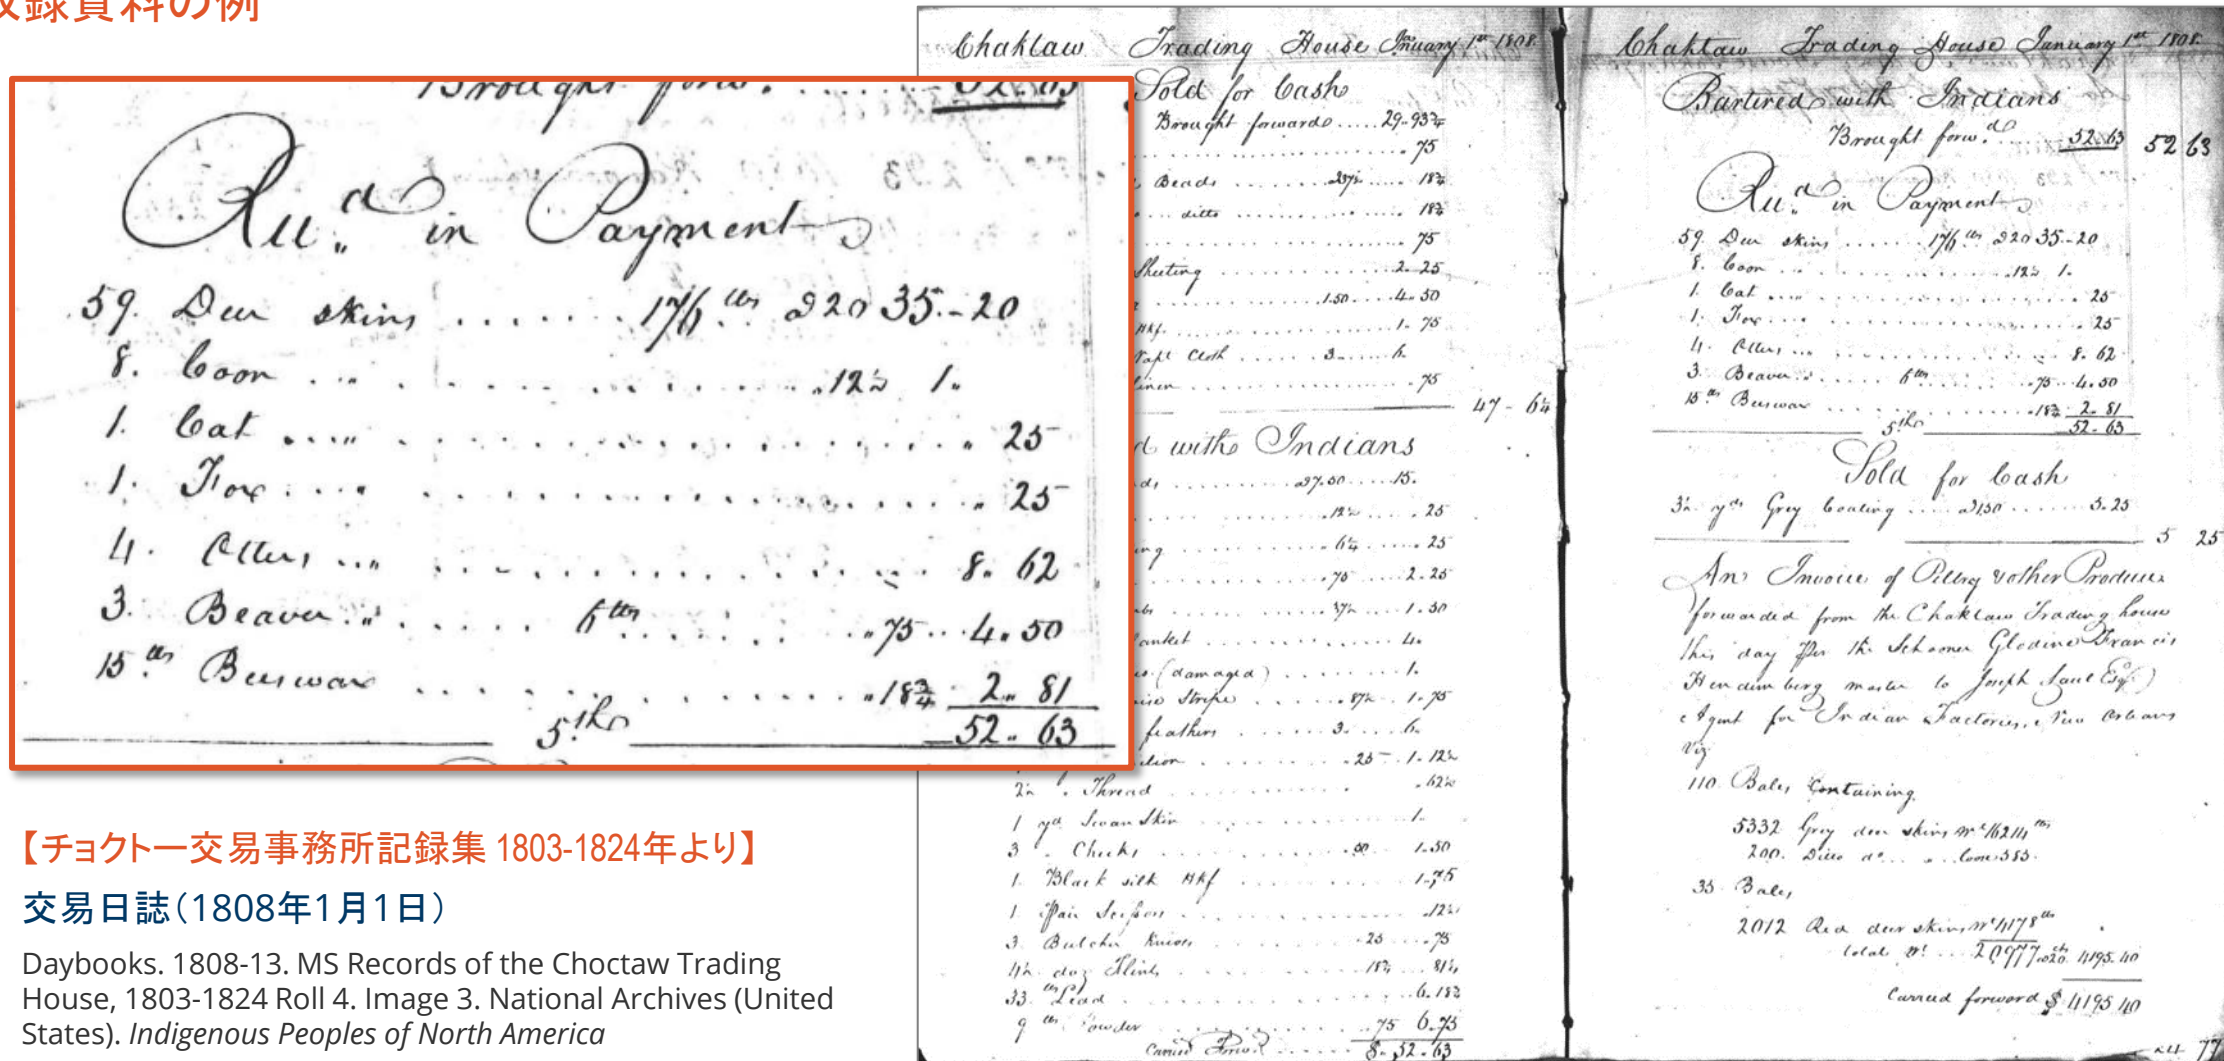 収録資料の例
Brought forwd. ...... 52.63
Recd in Payment
59. Deer skins ....... 176 lbs @20 35.-20
8. Coon ... .12½ 1.
1. Cat .... 25
1. Fox .... 25
4. Otters ... 8. 62
3. Beaver ..... 6 lbs .75 .. 4. 50
15 lbs Beeswax ..... .18¾ 2. 81
52. 63
5th
【チョクトー交易事務所記録集 1803-1824年より】
交易日誌（1808年1月1日）
Daybooks. 1808-13. MS Records of the Choctaw Trading
House, 1803-1824 Roll 4. Image 3. National Archives (United
States). Indigenous Peoples of North America
Chaktaw Trading House January 1st 1808.
Sold for Cash
Brought forward ..... 29-93¾
........ 75
Beads ........ 18¾
... ditto ........ 18¾
........ 75
Sheeting ........ 2. 25
........ 1.50 .... 4. 50
Hkf. ........ 1. 75
Napt Cloth ...... 3 .... 6.
........ 75
47 - 6¼
d with Indians
........ 15.
.12½ .... 25
.6¼ .... 25
.75 .... 2.25
.37½ .... 1.50
anket ........ 4.
(damaged) ........ 1.
Stripe ...... .87½ . 1.75
feathers ...... 3 .... 6.
.25 .. 1.12½
2½ " Thread ........ .62½
1 yd Swan Skin ........ 1.
3 " Checks ...... .50 1.50
1. Black silk Hkf ........ 1.75
1. Pair Scissors ........ .12½
3. Butcher Knives ...... .25 .... .75
4½ doz Flints ........ 18¾ ... 81¼
33 lbs Lead ........ 6.18¾
9 lbs Powder ........ .75 6.75
Carried Forwd ...... $. 52.63
Chaktaw Trading House January 1st 1808.
Bartered with Indians
Brought forwd. ... 52.63 52 63
Recd in Payment
59. Deer skins ....... 176 lbs @20 35.-20
8. Coon ... .12½ 1.
1. Cat .... 25
1. Fox .... 25
4. Otters ... 8. 62
3. Beaver ..... 6 lbs .75 .. 4.50
15 lbs Beeswax ..... .18¾ 2. 81
52. 63
5th
Sold for Cash
3½ yds Grey Coating .... @1.50 ...... 5.25
5 25
An Invoice of Peltry & other Produce
forwarded from the Chaktaw Trading house
this day Per the Schooner Francis
master to Joseph Saul Esqr
Agent for Indian Factories, New Orleans
Viz
110 Bales Containing
5332 Grey deer skins wt 16214 lbs
200. Ditto do .. loose 585.
35 Bales,
2012 Red deer skins wt 4178 lbs
total wt ... 20977 @20 cts 4195.40
Carried forward $ 4195 40